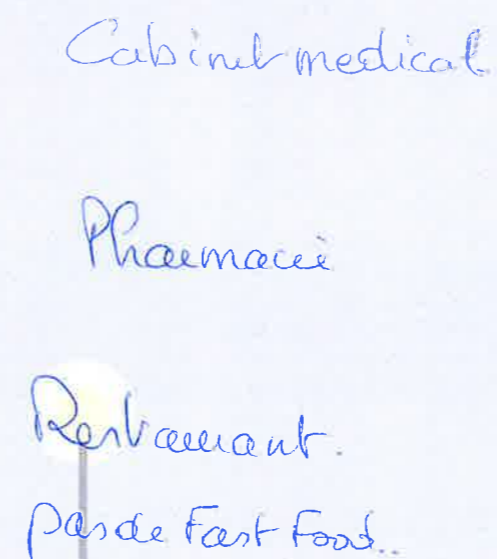 Cabinet medical
Pharmacie
Restaurant.
pas de Fast Food..